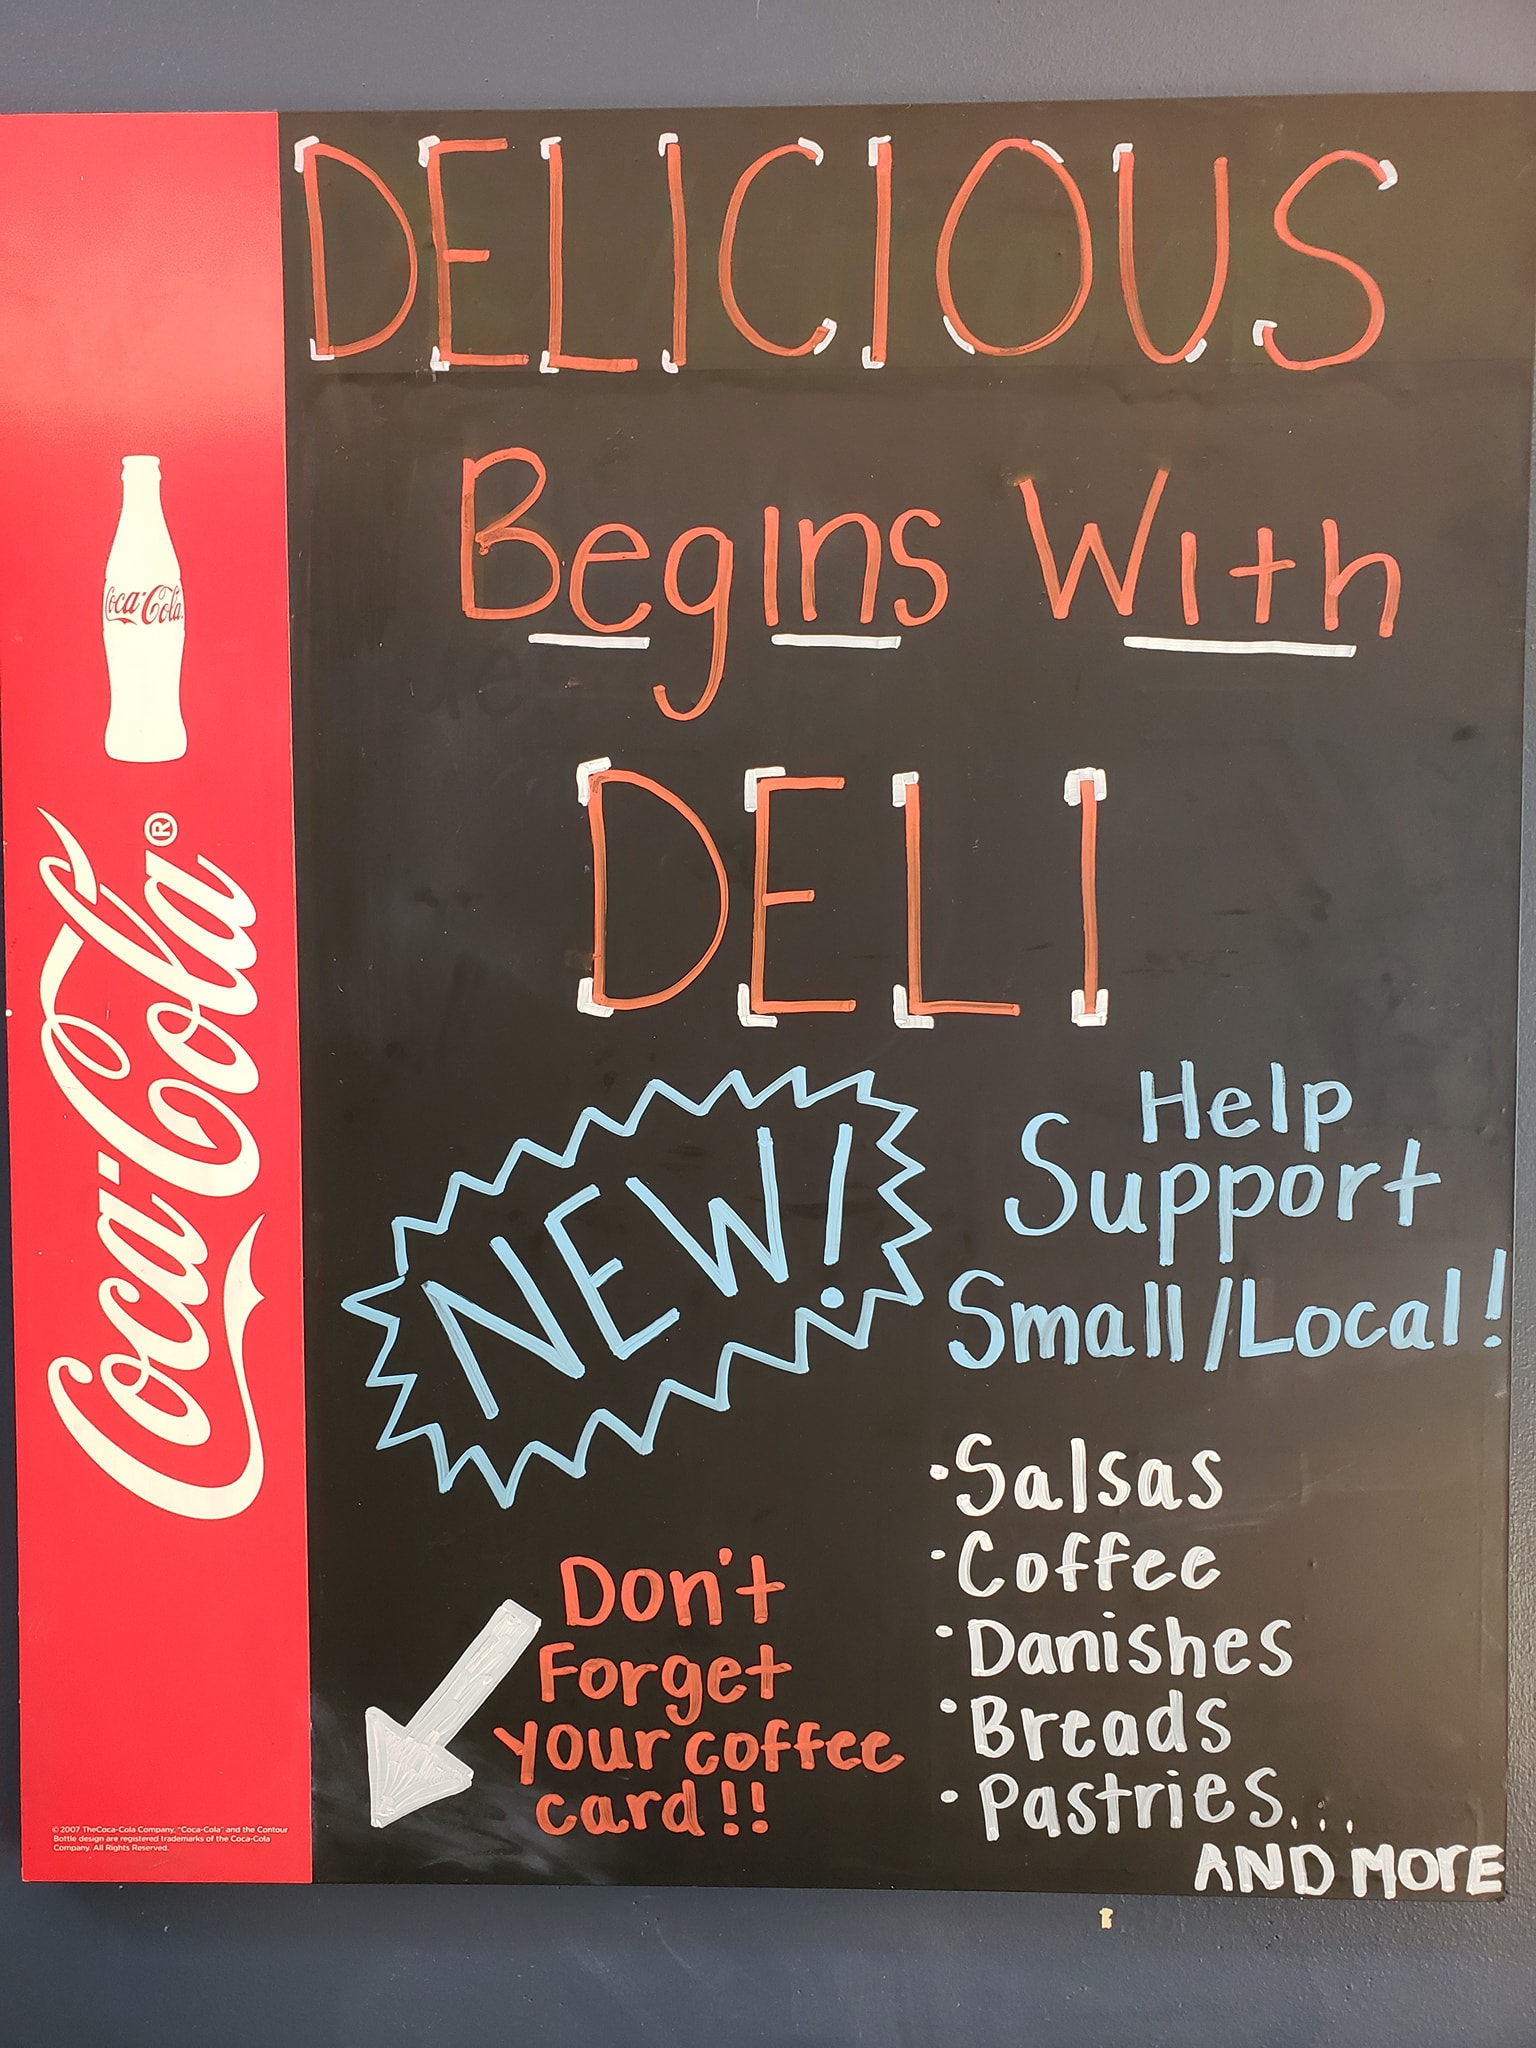 DELICIOUS
Begins With
DELI
NEW!
Help
Support
Small/Local!
•Salsas
•Coffee
•Danishes
•Breads
•Pastries...
AND MORE
Don't
Forget
your coffee
card!!
Coca-Cola
Coca-Cola®
© 2007 TheCoca-Cola Company. "Coca-Cola" and the Contour
Bottle design are registered trademarks of the Coca-Cola
Company. All Rights Reserved.